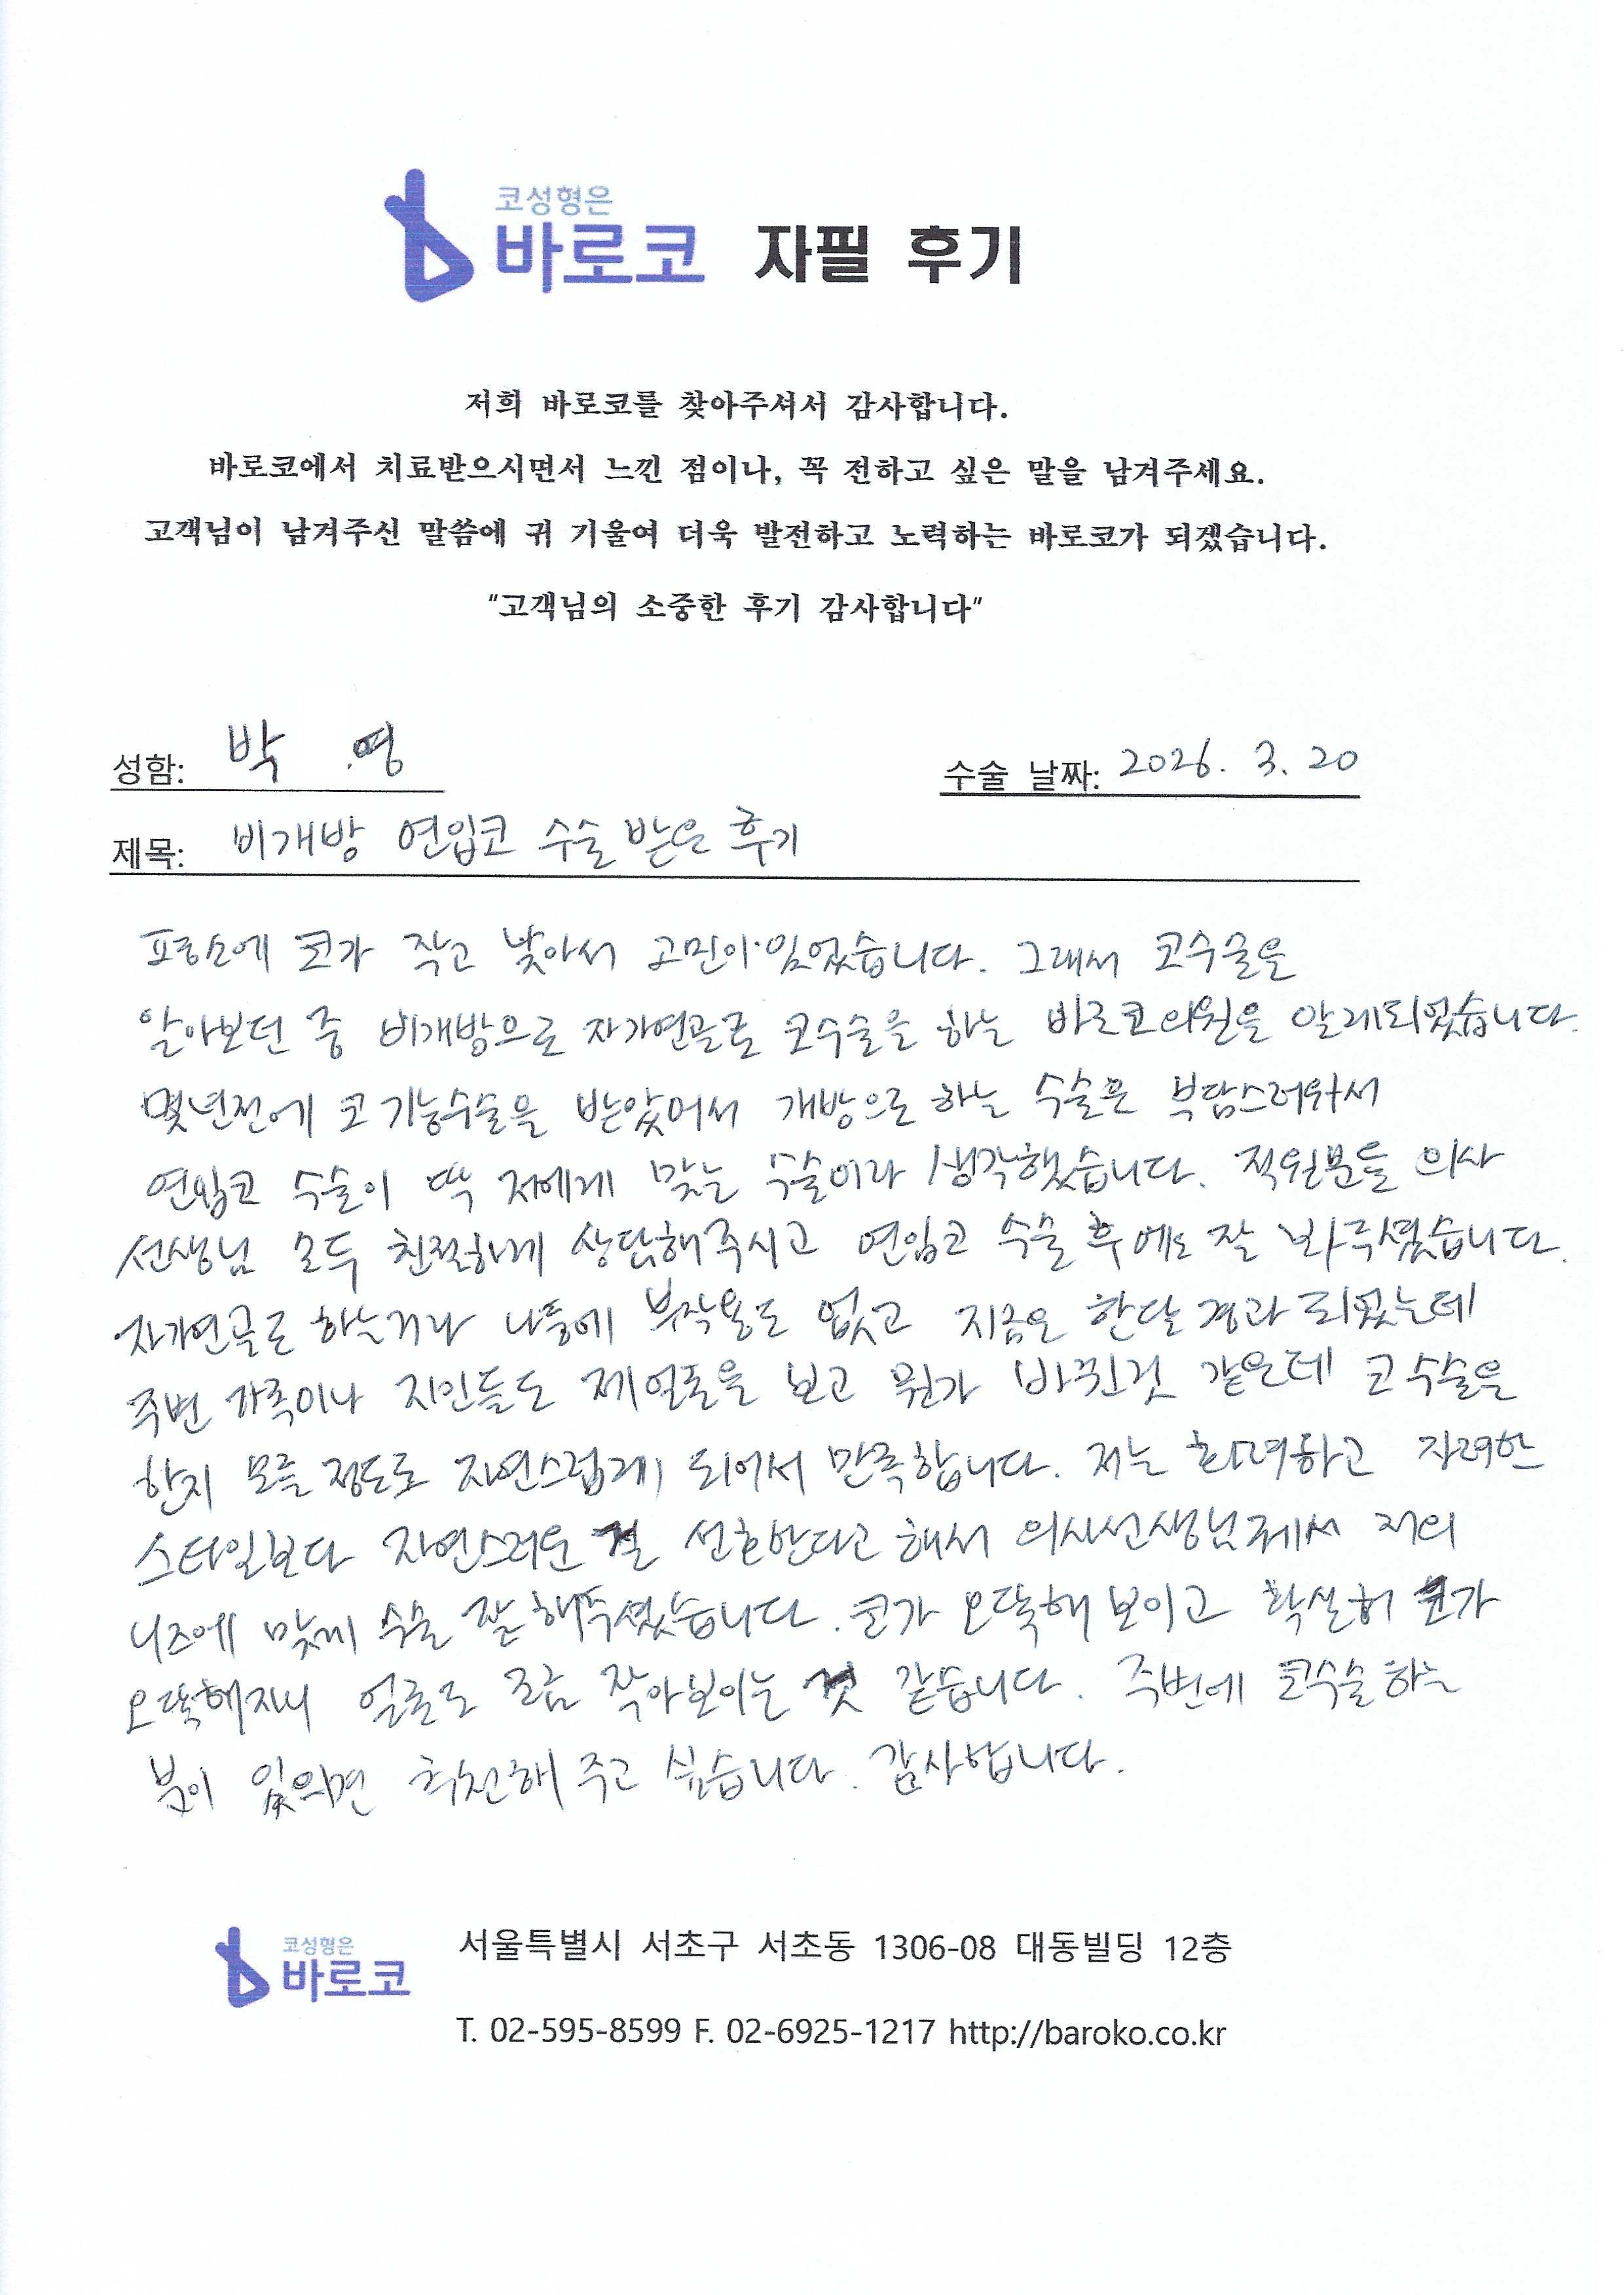 코성형은
바로코 자필 후기
저희 바로코를 찾아주셔서 감사합니다.
바로코에서 치료받으시면서 느낀 점이나, 꼭 전하고 싶은 말을 남겨주세요.
고객님이 남겨주신 말씀에 귀 기울여 더욱 발전하고 노력하는 바로코가 되겠습니다.
"고객님의 소중한 후기 감사합니다"
성함: 박 영 수술 날짜: 2026. 3. 20
제목: 비개방 연입코 수술 받은 후기
평소에 코가 작고 낮아서 고민이 있었습니다. 그래서 코수술을
알아보던 중 비개방으로 자가연골로 코수술을 하는 바로코의원을 알게되었습니다.
몇년전에 코 기능수술을 받았어서 개방으로 하는 수술은 부담스러워서
연입코 수술이 딱 저에게 맞는 수술이라 생각했습니다. 직원분들 의사
선생님 모두 친절하게 상담해주시고 연입코 수술 후에도 잘 봐주셨습니다.
자가연골로 하는거라 나중에 부작용도 없고 지금은 한달 경과 되었는데
주변 가족이나 지인들도 제 얼굴을 보고 뭔가 바뀐것 같은데 코수술을
한지 모를 정도로 자연스럽게 되어서 만족합니다. 저는 화려하고 자려한
스타일보다 자연스러운 걸 선호한다고 해서 의사선생님께서 저의
니즈에 맞게 수술 잘 해주셨습니다. 코가 오똑해 보이고 확실히 코가
오똑해지니 얼굴도 조금 작아보이는 것 같습니다. 주변에 코수술 하는
분이 있으면 추천해 주고 싶습니다. 감사합니다.
코성형은
바로코
서울특별시 서초구 서초동 1306-08 대동빌딩 12층
T. 02-595-8599 F. 02-6925-1217 http://baroko.co.kr